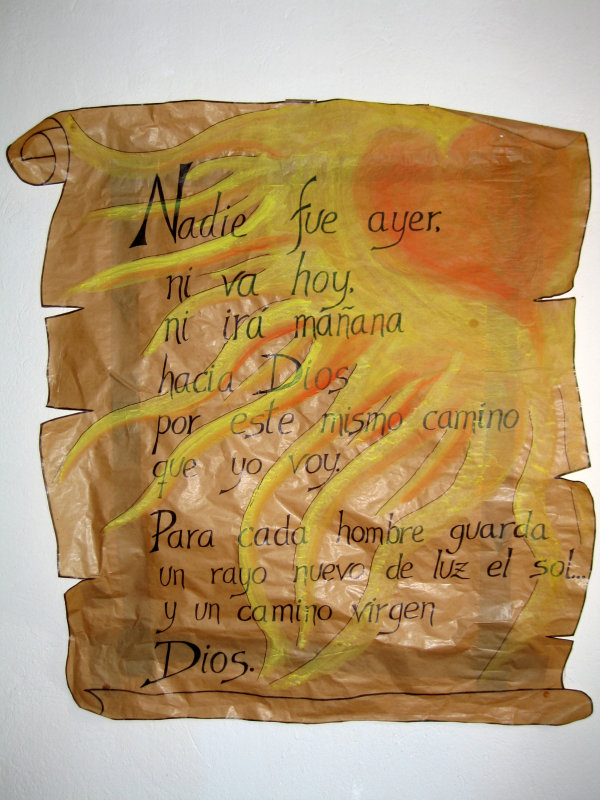 Nadie fue ayer,
ni va hoy,
ni irá mañana
hacia Dios
por este mismo camino
que yo voy.
Para cada hombre guarda
un rayo nuevo de luz el sol...
y un camino virgen
Dios.